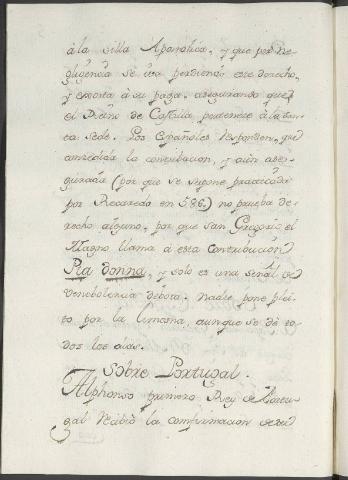 à la silla Apostolica, y que por ne-
gligencia se iva perdiendo este derecho,
y exorta à su paga. asegurando que
el Reino de Castilla pertenece à la san-
ta sede. Los Españoles responden, que
concedida la contribucion, y aun ase-
gurada (por que se supone practicada
por Recaredo en 586.) no prueba de-
recho alguno, por que san Gregorio el
Magno llama à esta Contribucion
Pia donna, y solo es una señal de
venebolencia debota. nadie pone plei-
to por la limosna, aunque se dè to-
dos los dias.
Sobre Portugal.
Alphonso primero Rey de Portu-
gal recibiò la confirmacion